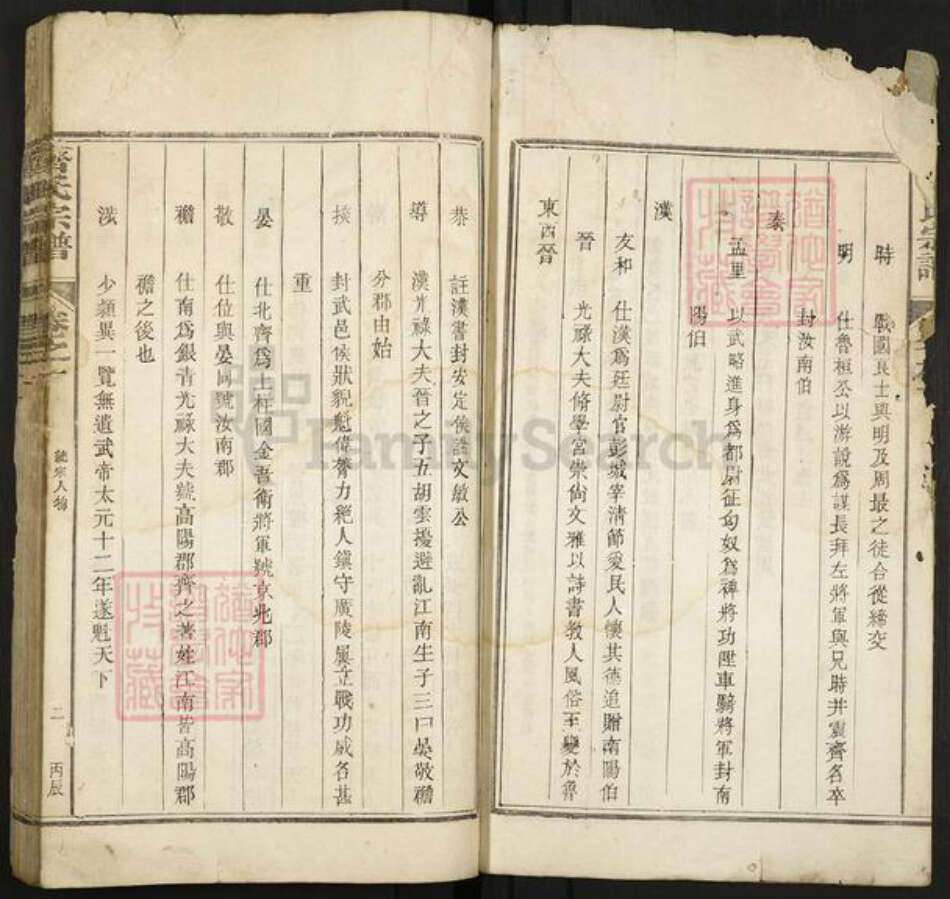 時 戰國良士與明及周最之徒合從締交
明 仕魯桓公以游說為謀長拜左將軍與兄時并震齊名卒
封汝南伯
秦
孟里 以武略進身為都尉征匈奴為裨將功陞車騎將軍封南
陽伯
漢
友和 仕漢為廷尉官彭城宰清節愛民人懷其德追贈南陽伯
晉 光祿大夫脩學宮崇尙文雅以詩書教人風俗丕變於齊
東西晉
恭 註漢書封安定侯諡文敏公
導 漢光祿大夫晉之子五胡雲擾避亂江南生子三曰晏敬襜
分郡由始
掞 封武邑侯狀貌魁偉膂力絕人鎭守廣陵屢立戰功威名甚
重
晏 仕北齊爲上柱國金吾衛將軍號京兆郡
敬 仕位與晏同號汝南郡
襜 仕南爲銀青光祿大夫號高陽郡齊之著姓江南皆高陽郡
襜之後也
滋 少穎異一覽無遺武帝太元十二年遂魁天下
氏宗譜
卷之一
統宗人物
二
丙辰
FamilySearch